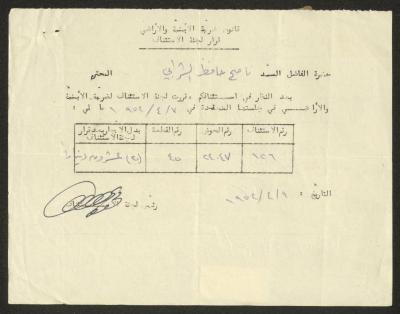 قانون ضريبة الابنية والاراضي
قرار لجنة الاستئناف
حضرة الفاضل السيد ناجح حافظ الشرابي المحترم
بعد النظر في استئنافكم قررت لجنة الاستئناف لضريبة الابنية
والاراضي في جلستها المنعقدة في ١٩٥٤/٤/٧ ما يلي :
رقم الاستئناف رقم الحوض رقم القطعة بدل الايجار بعد قرار لجنة الاستئناف
١٥٦ ٤٥ عشرون دينارا
التاريخ : ١٩٥٤/٤/٩
رئيس لجنة